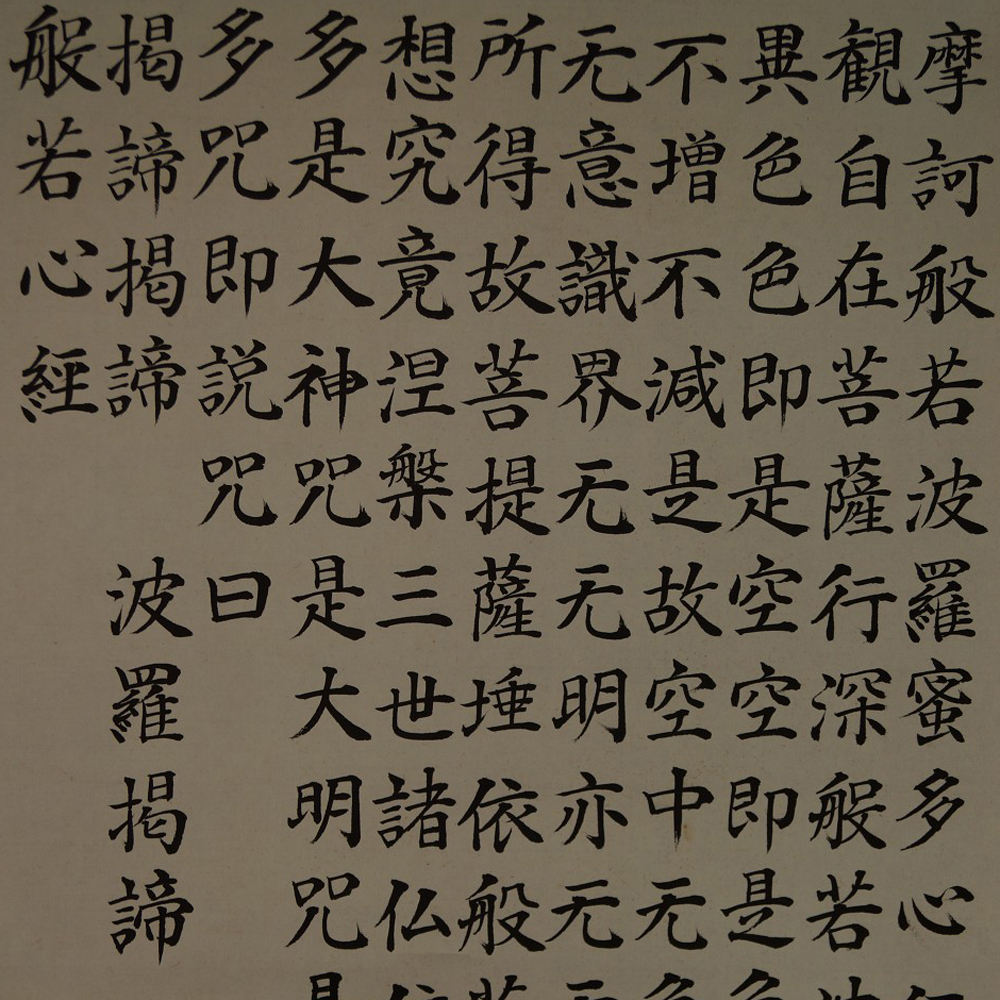 摩訶般若波羅蜜多心
観自在菩薩行深般若
異色色即是空空即是
不増不減是故空中无
无意識界无无明亦无
所得故菩提薩埵依般
想究竟涅槃三世諸仏
多是大神咒是大明咒
多咒即説咒曰
揭諦揭諦 波羅揭諦
般若心經